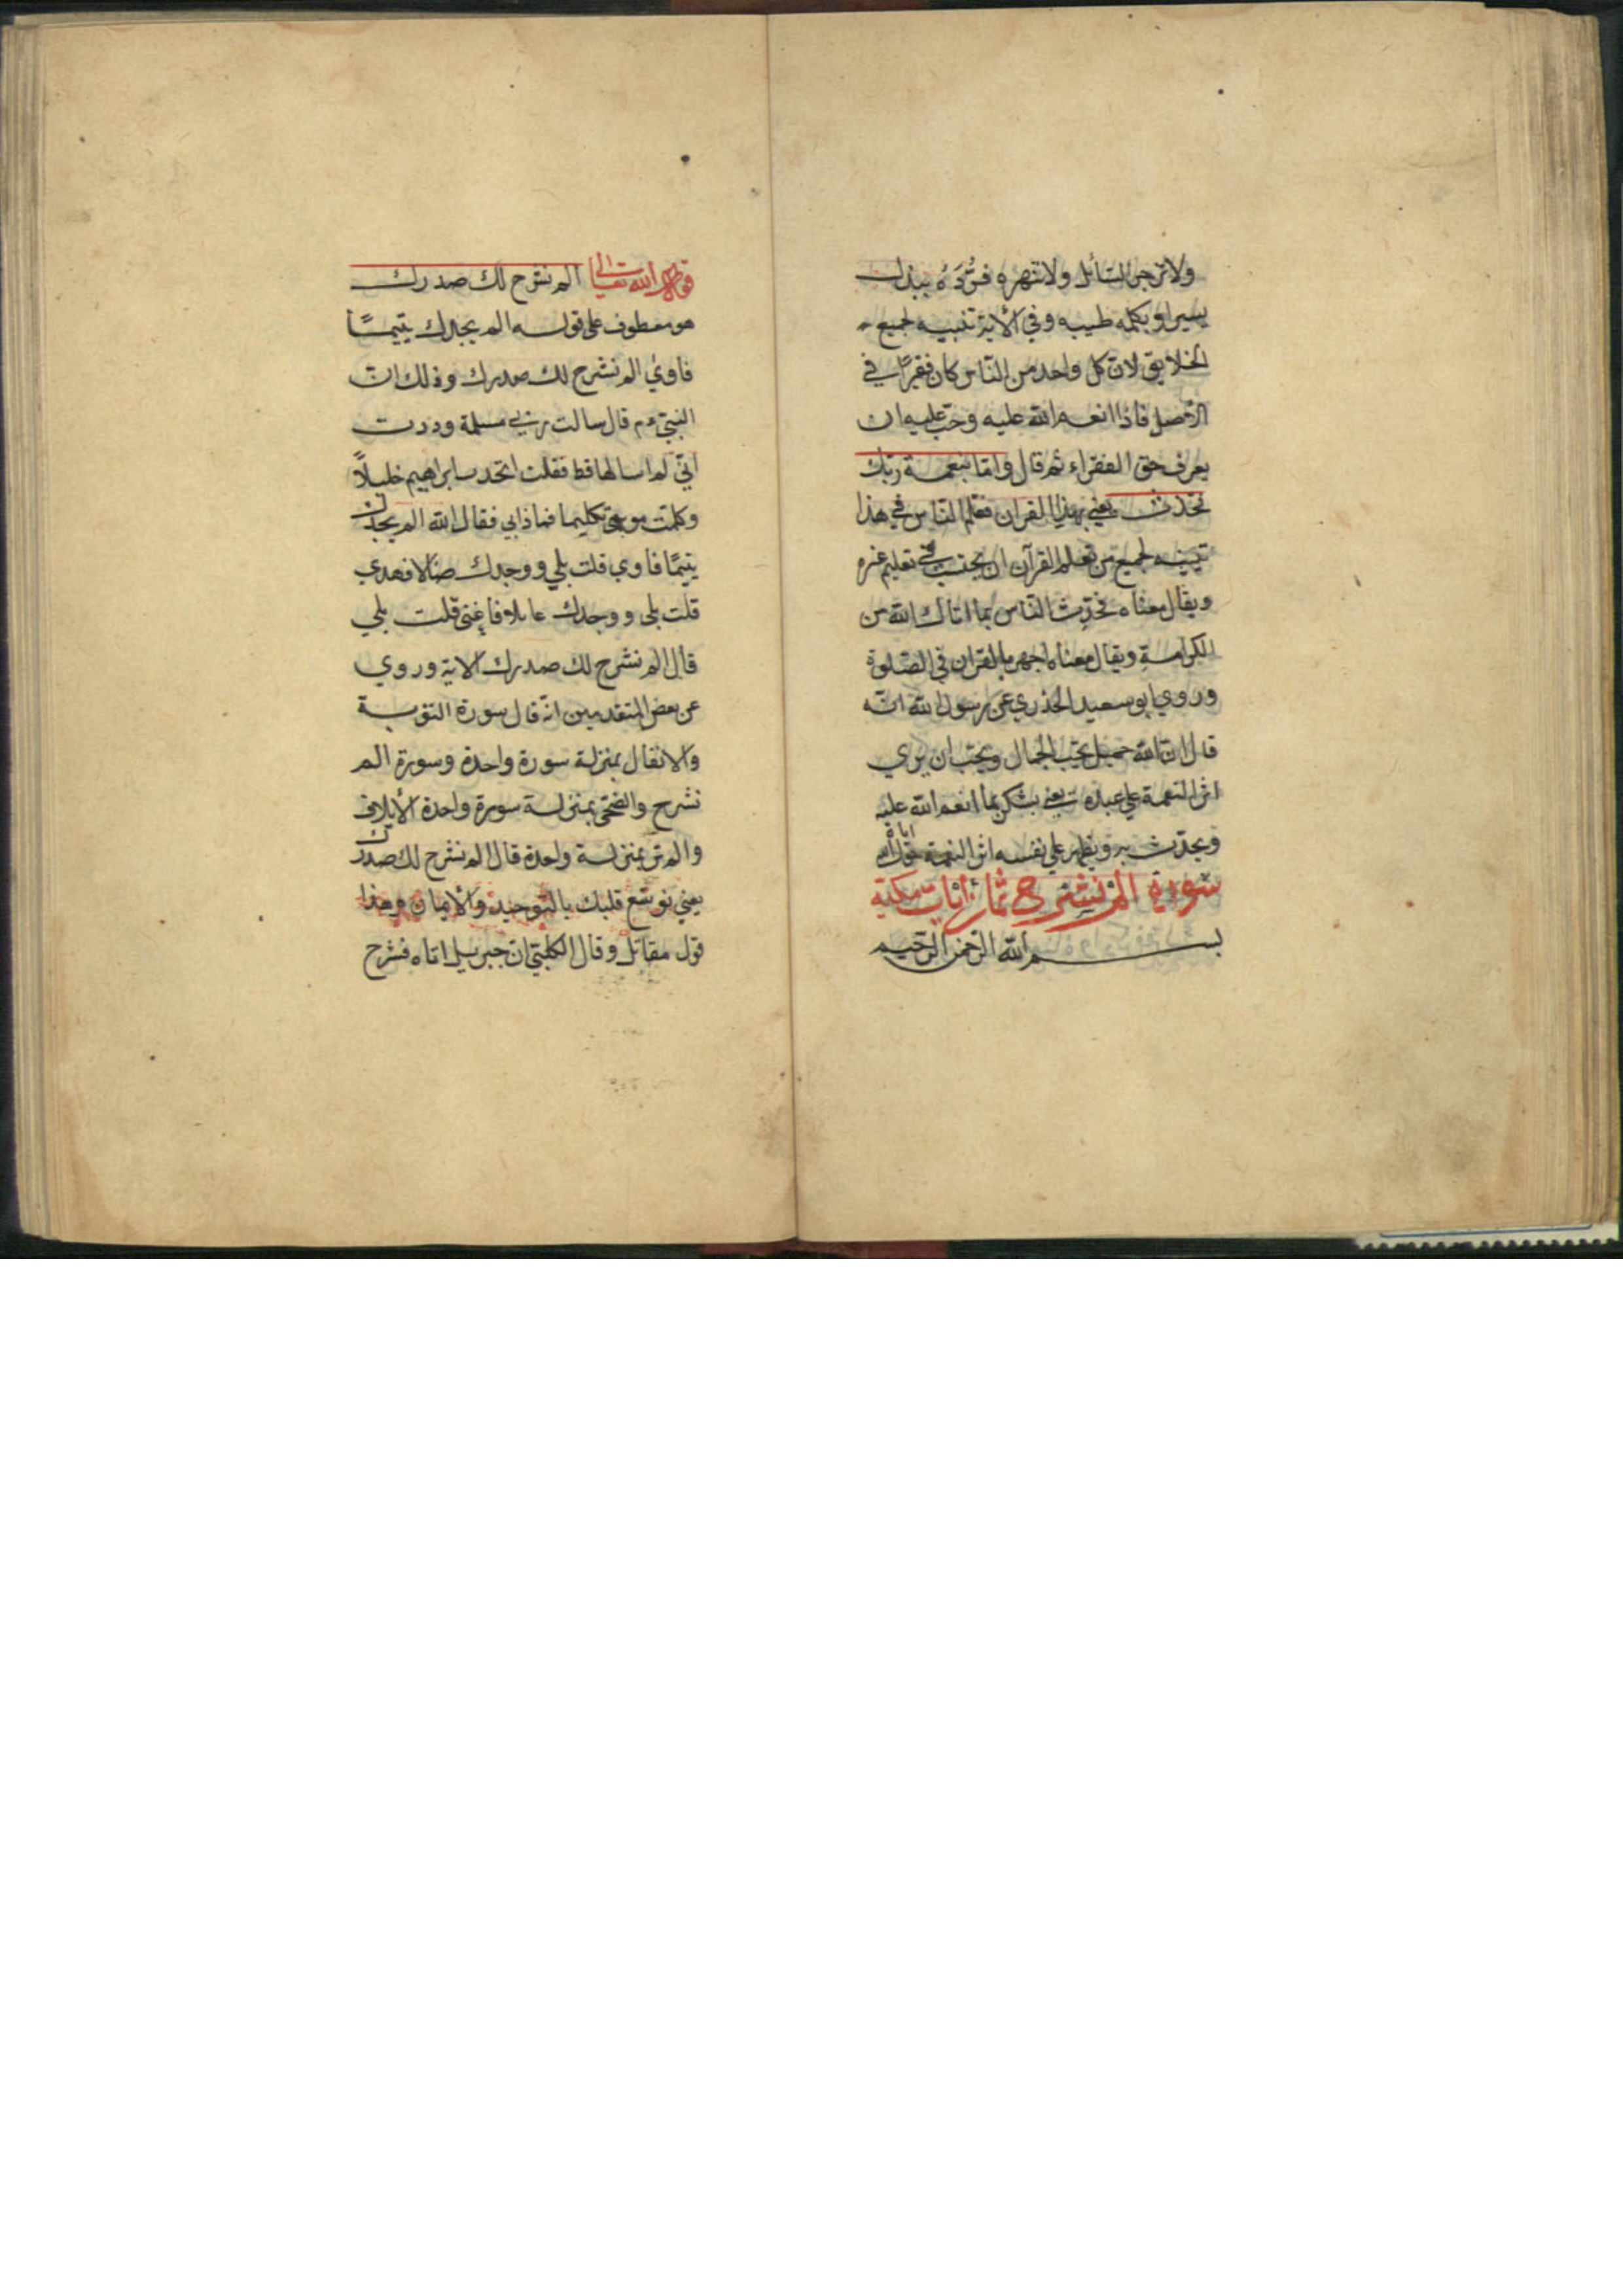 ولا تزجر السائل ولا تنهره فرده ببذل
يسير او بكلمه طيبه وفي الاية تنبيه لجميع
الخلايق لان كل واحد من الناس كان فقيرا في
الاصل فاذا انعم الله عليه وجب عليه ان
يعرف حق الفقراء ثم قال واما بنعمة ربك
فحدث يعني بهذا القران فعلم الناس في هذا
تنبيه لجميع من تعلم القرآن ان يحتسب في تعليم غيره
ويقال معناه فحدث الناس بما اتاك الله من
الكرامة ويقال معناه اجهر بالقران في الصلوة
وروي ابو سعيد الخذري عن رسول الله انه
قال ان الله جميل يحب الجمال ويحب ان يري
اثر النعمة علي عبده يعني يشكر بما انعم الله عليه
ويحدث به ويظهر علي نفسه اثر النعمة
سورة الم نشرح ثمان ايات مكية
بسم الله الرحمن الرحيم
قوله تعالى الم نشرح لك صدرك
هو معطوف على قوله الم يجدك يتيمًا
فاوي الم نشرح لك صدرك وذلك ان
النبي عم قال سالت ربي مسلمة وددت
اني لم اسالها قط فقلت اتخدت ابراهيم خليلاً
وكلمت موسى تكليما فماذابي فقال الله الم يجدك
يتيمًا فاوي قلت بلي ووجدك ضالا فهدي
قلت بلى ووجدك عايلا فاغنى قلت بلي
قال الم نشرح لك صدرك الاية وروي
عن بعض المتقدمين انه قال سورة التوبة
والانفال بمنزلة سورة واحدة وسورة الم
نشرح والضحى بمنزلة سورة واحدة لايلاف
والم تر بمنزلة واحدة قال الم نشرح لك صدرك
يعني نوسع قلبك بالتوحيد والايمان وهذا
قول مقاتل وقال الكلبي ان جبرييل اتاه فشرح